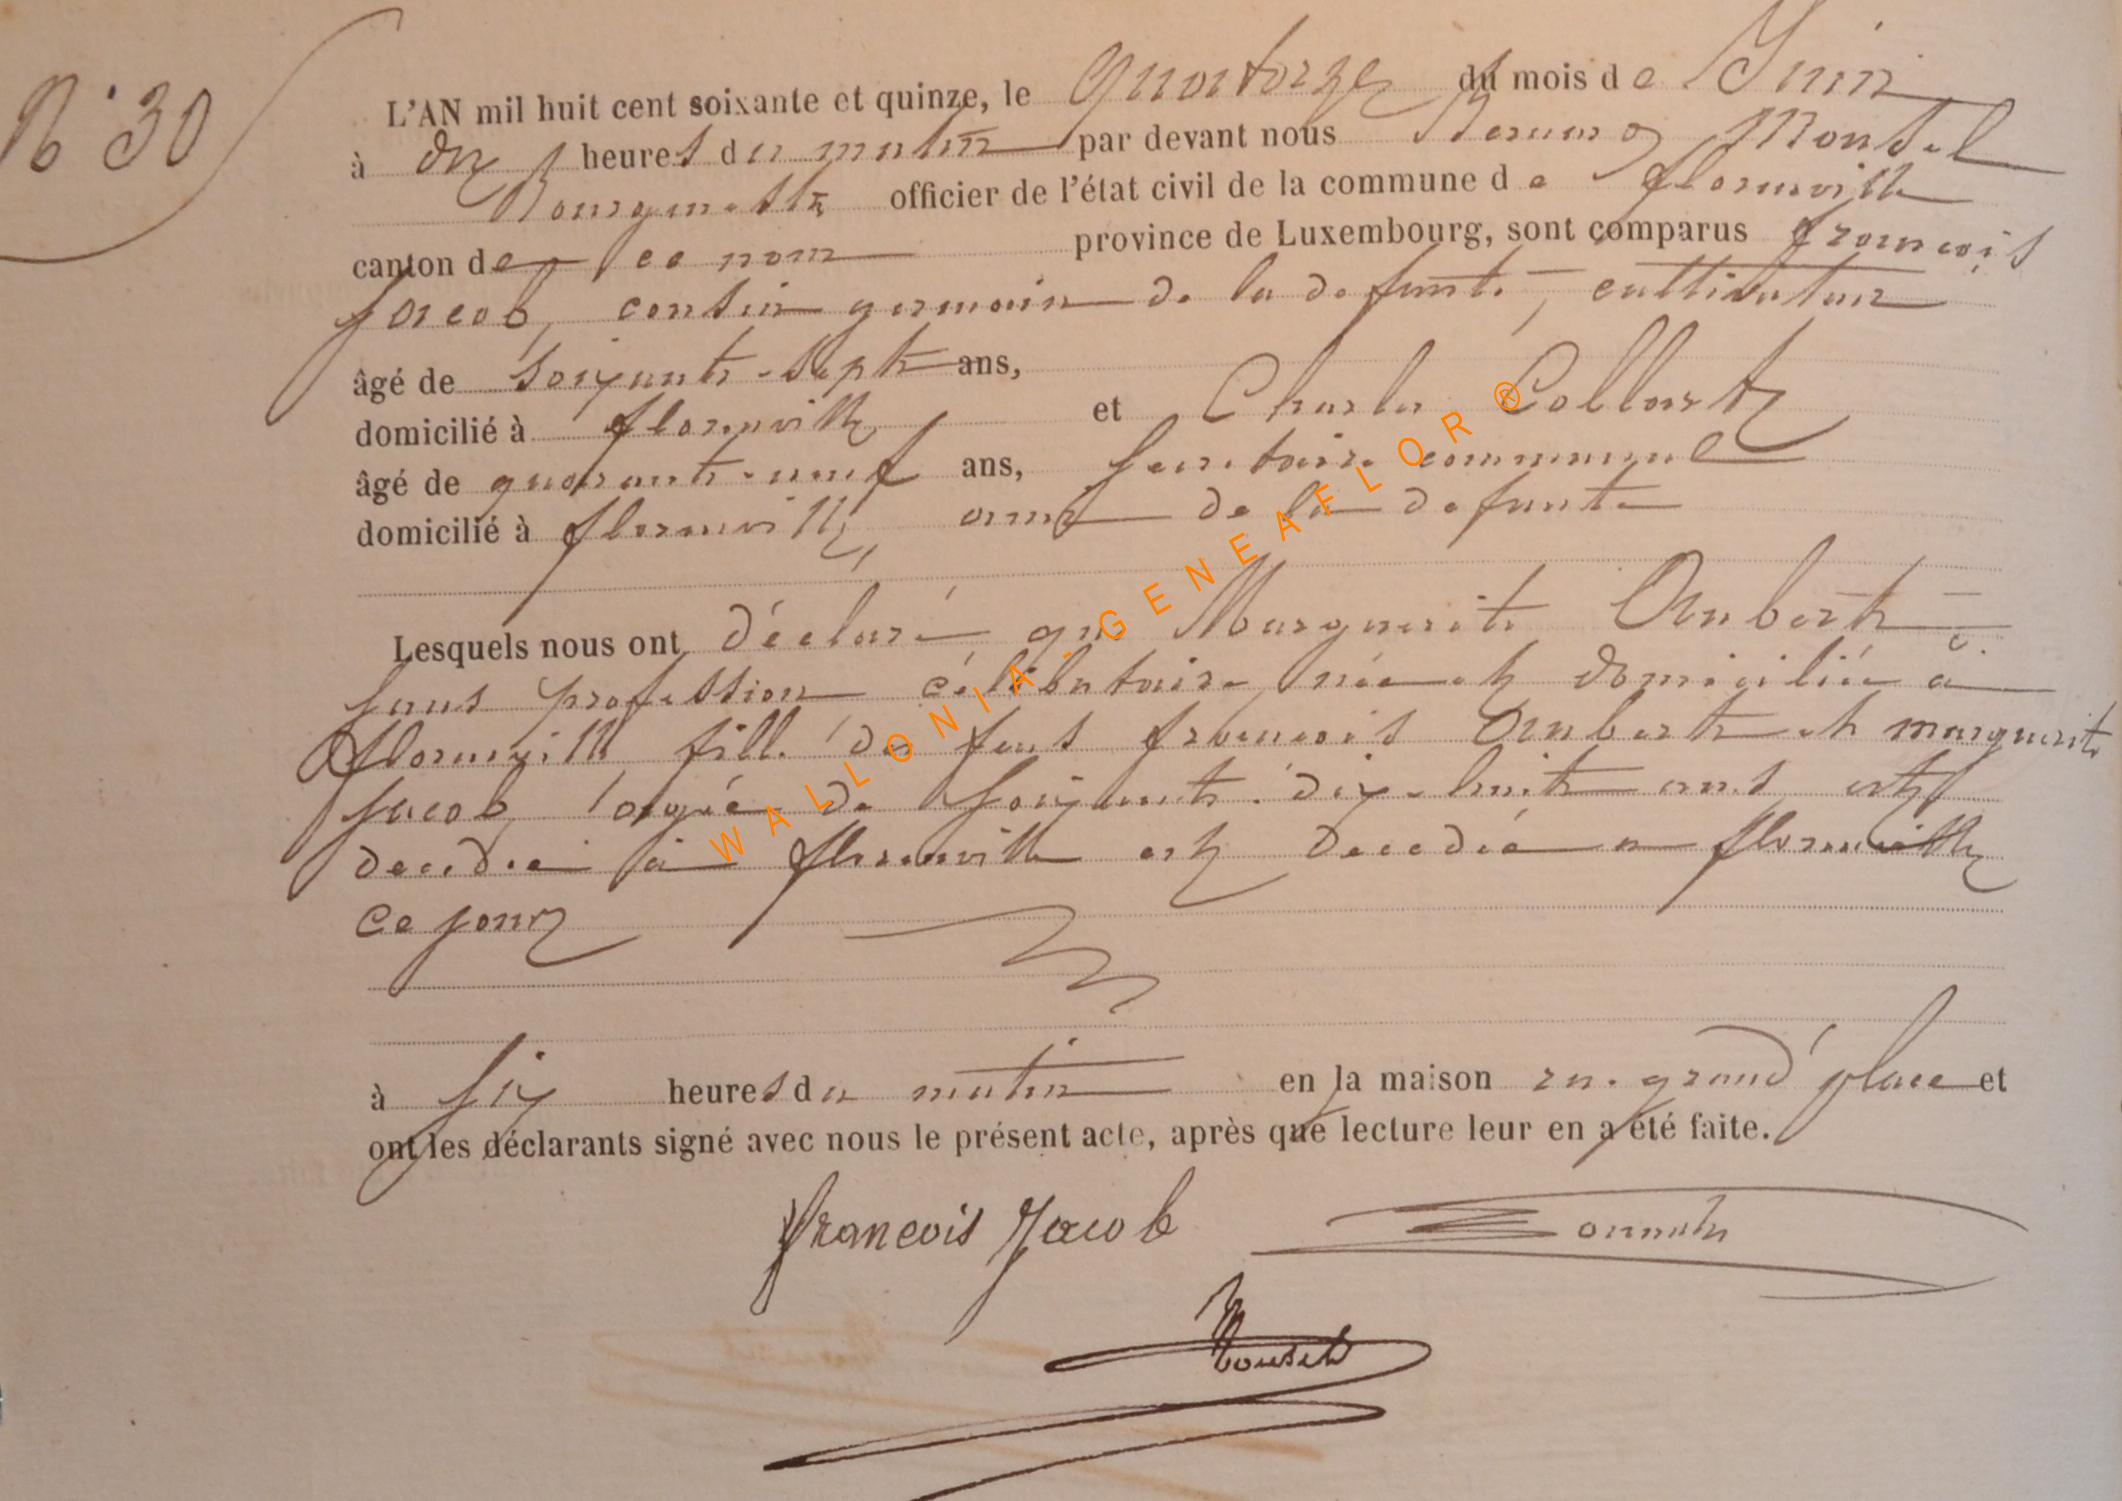 N° 30
L'AN mil huit cent soixante et quinze, le Quatorze du mois de Juin
à dix heures du matin par devant nous Monsel
Bourgmestre officier de l'état civil de la commune de florenville
canton de ce nom province de Luxembourg, sont comparus françois
Jacob, cousin germain de la defunte, cultivateur
âgé de soixante-sept ans,
domicilié à florenville et Charles Collart
âgé de quarante-neuf ans, secretaire communal
domicilié à florenville, ami de la defunte
Lesquels nous ont déclaré que Marguerite Aubert
sans profession célibataire née et domiciliée à
florenville fille de feus françois Aubert et marguerite
Jacob, agée de soixante-dix-huit ans est
decedée à florenville est decedée a florenville
ce jour
à six heures du matin en la maison rue grand place et
ont les déclarants signé avec nous le présent acte, après que lecture leur en a été faite.
francois Jacob
WALLONIA.GENEAFLOR ®